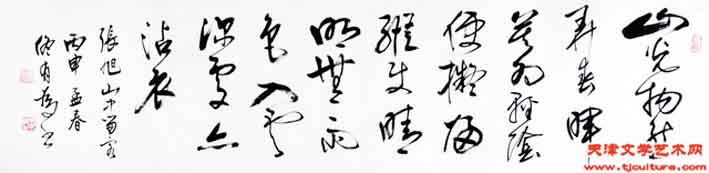 山光物態
弄春暉
莫為輕陰
便擬歸
縱使晴
明無雨
色入雲
深處亦
沾衣
張旭山中留客
丙申孟春
天津文学艺术网
www.tjculture.com